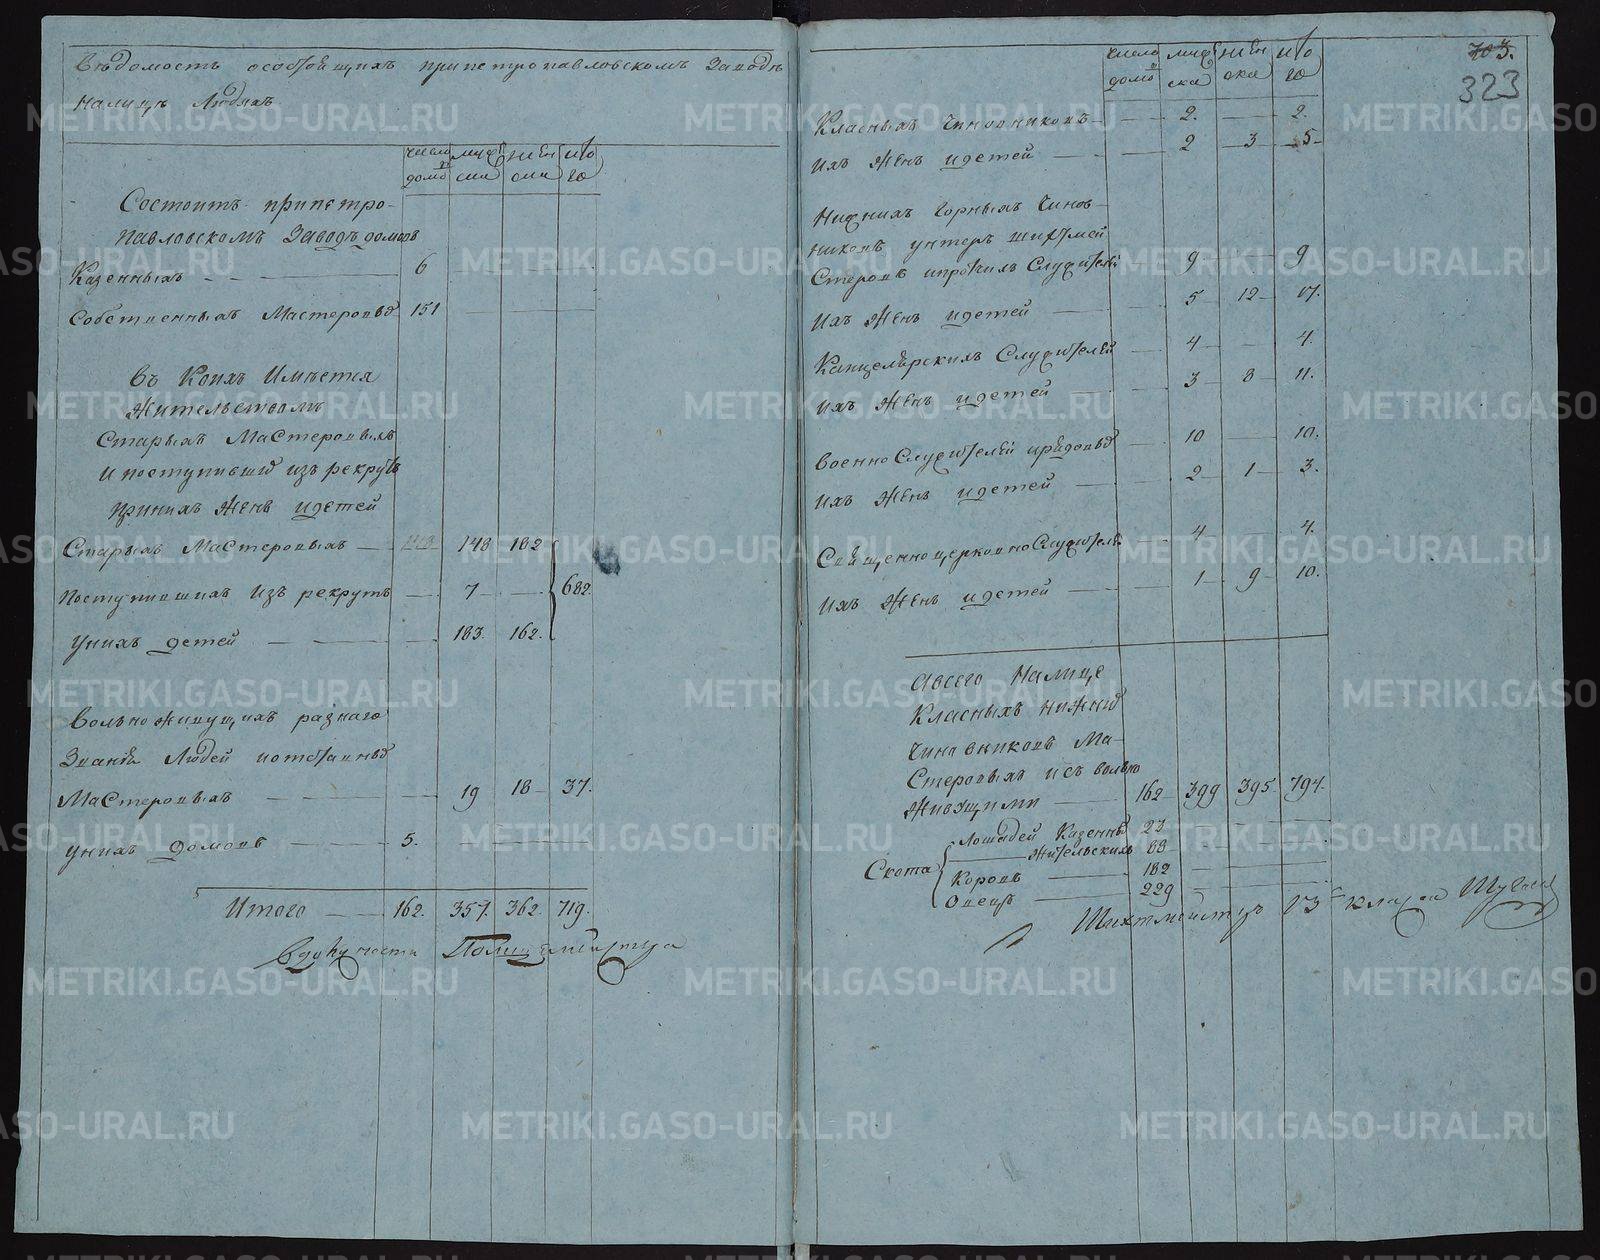 Вѣдомость осостоящихъ припетропавловскомъ Заводѣ
налицѣ Людяхъ
число домо мужска женска ито го
Состоитъ припетро-
павловскомъ Заводѣ домовъ
Казенныхъ — 6
Собственныхъ Мастеровыхъ 151
Въ Коихъ Имѣется
Жительствомъ
Старыхъ Мастеровыхъ
И поступивши изъ рекрутъ
Принихъ женъ идетей
Старыхъ Мастеровыхъ — 148 182
Поступившихъ Изъ рекрутъ — 7 — 682.
Унихъ детей — 183. 162.
Вольноживущихъ разнаго
Званія Людей иотставныхъ
Мастеровыхъ — 19 18 37.
унихъ домовъ — 5.
Итого — 162. 357. 362. 719.
Вдолжности Полицемейстра
703.
323
число домо мужска женска ито го
Класныхъ Чиновниковъ — 2. — 2.
Ихъ Женъ идетей — 2 3 5
Нижнихъ Горныхъ Чинов-
никовъ унтеръ шихтмей
Стеровъ ипрочихъ Служителей — 9 — 9.
Ихъ Женъ идетей — 5 12 17.
Канцелярскихъ Служителей — 4 — 4.
Ихъ Женъ идетей — 3 8 11.
ВоенноСлужителей — 10 — 10.
Ихъ Женъ идетей — 2 1 3.
СвященноцерковноСлужителей — 4 — 4.
Ихъ Женъ идетей — 1 9 10.
Авсего Налице
Класныхъ нижнихъ
Чиновниковъ Ма-
Стеровыхъ исъ вольно
Живущими — 162 399 395 794.
Скота
Лошадей Казенныхъ 23
Жительскихъ 88
Коровъ — 182
Овецъ — 229
Шихтмейстеръ 13 класса
METRIKI.GASO-URAL.RU